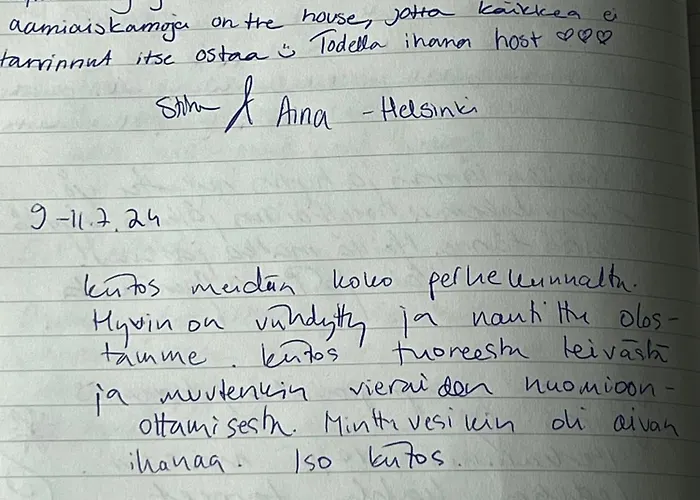 aamiaiskamoja on the house, jotta kaikkea ei
tarvinnut itse ostaa :) Todella ihana host ♡♡♡
& Aina - Helsinki
9-11.7.24
Kiitos meidän koko perhekunnalta.
Hyvin on viihdytty ja nautittu olos-
tamme. Kiitos tuoreesta leivästä
ja muutenkin vieraiden huomioon-
ottamisesta. Minttuvesikin oli aivan
ihanaa. Iso kiitos.